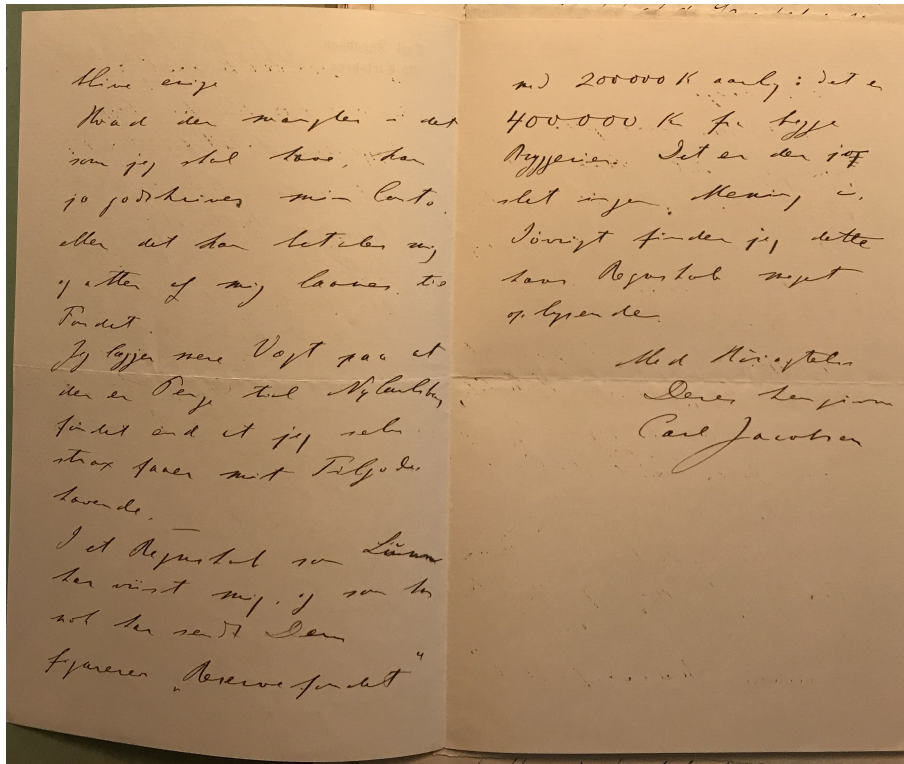 blive enige
Hvad der mangler i det
som jeg skal have, kan
jo godskrives min Conto.
eller det kan betales mig
og atter af mig laanes til
Fondet.
Jeg lægger mere Vægt paa at
der er Penge til Ny Carlsberg
fondet end at jeg selv
strax faaer mit Tilgode
havende.
I et Regnskab som
har viist mig, og som han
nok har sendt Dem
figurerer "Reservefondet"
med 200000 K aarlig: det er
400000 K fra begge
Bryggerier. Det er der jo
slet ingen Mening i.
Iøvrigt finder jeg dette
hans Regnskab meget
oplysende.
Med Høiagtelse
Deres hengivne
Carl Jacobsen